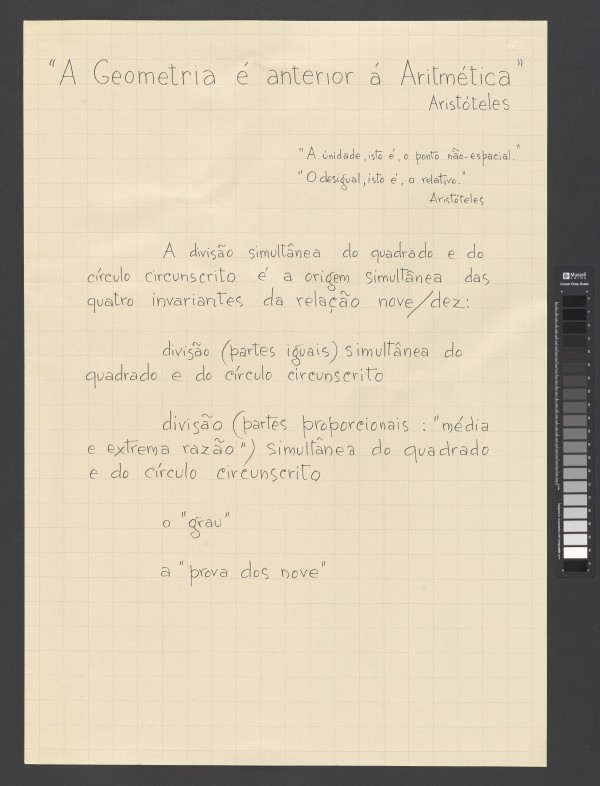 "A Geometria é anterior á Aritmética"
Aristóteles
"A únidade, isto é, o ponto não-espacial."
"O desigual, isto é, o relativo."
Aristóteles
A divisão simultânea do quadrado e do
círculo circunscrito é a origem simultânea das
quatro invariantes da relação nove/dez:
divisão (partes iguais) simultânea do
quadrado e do círculo circunscrito
divisão (partes proporcionais : "média
e extrema razão") simultânea do quadrado
e do círculo circunscrito
o "grau"
a "prova dos nove"